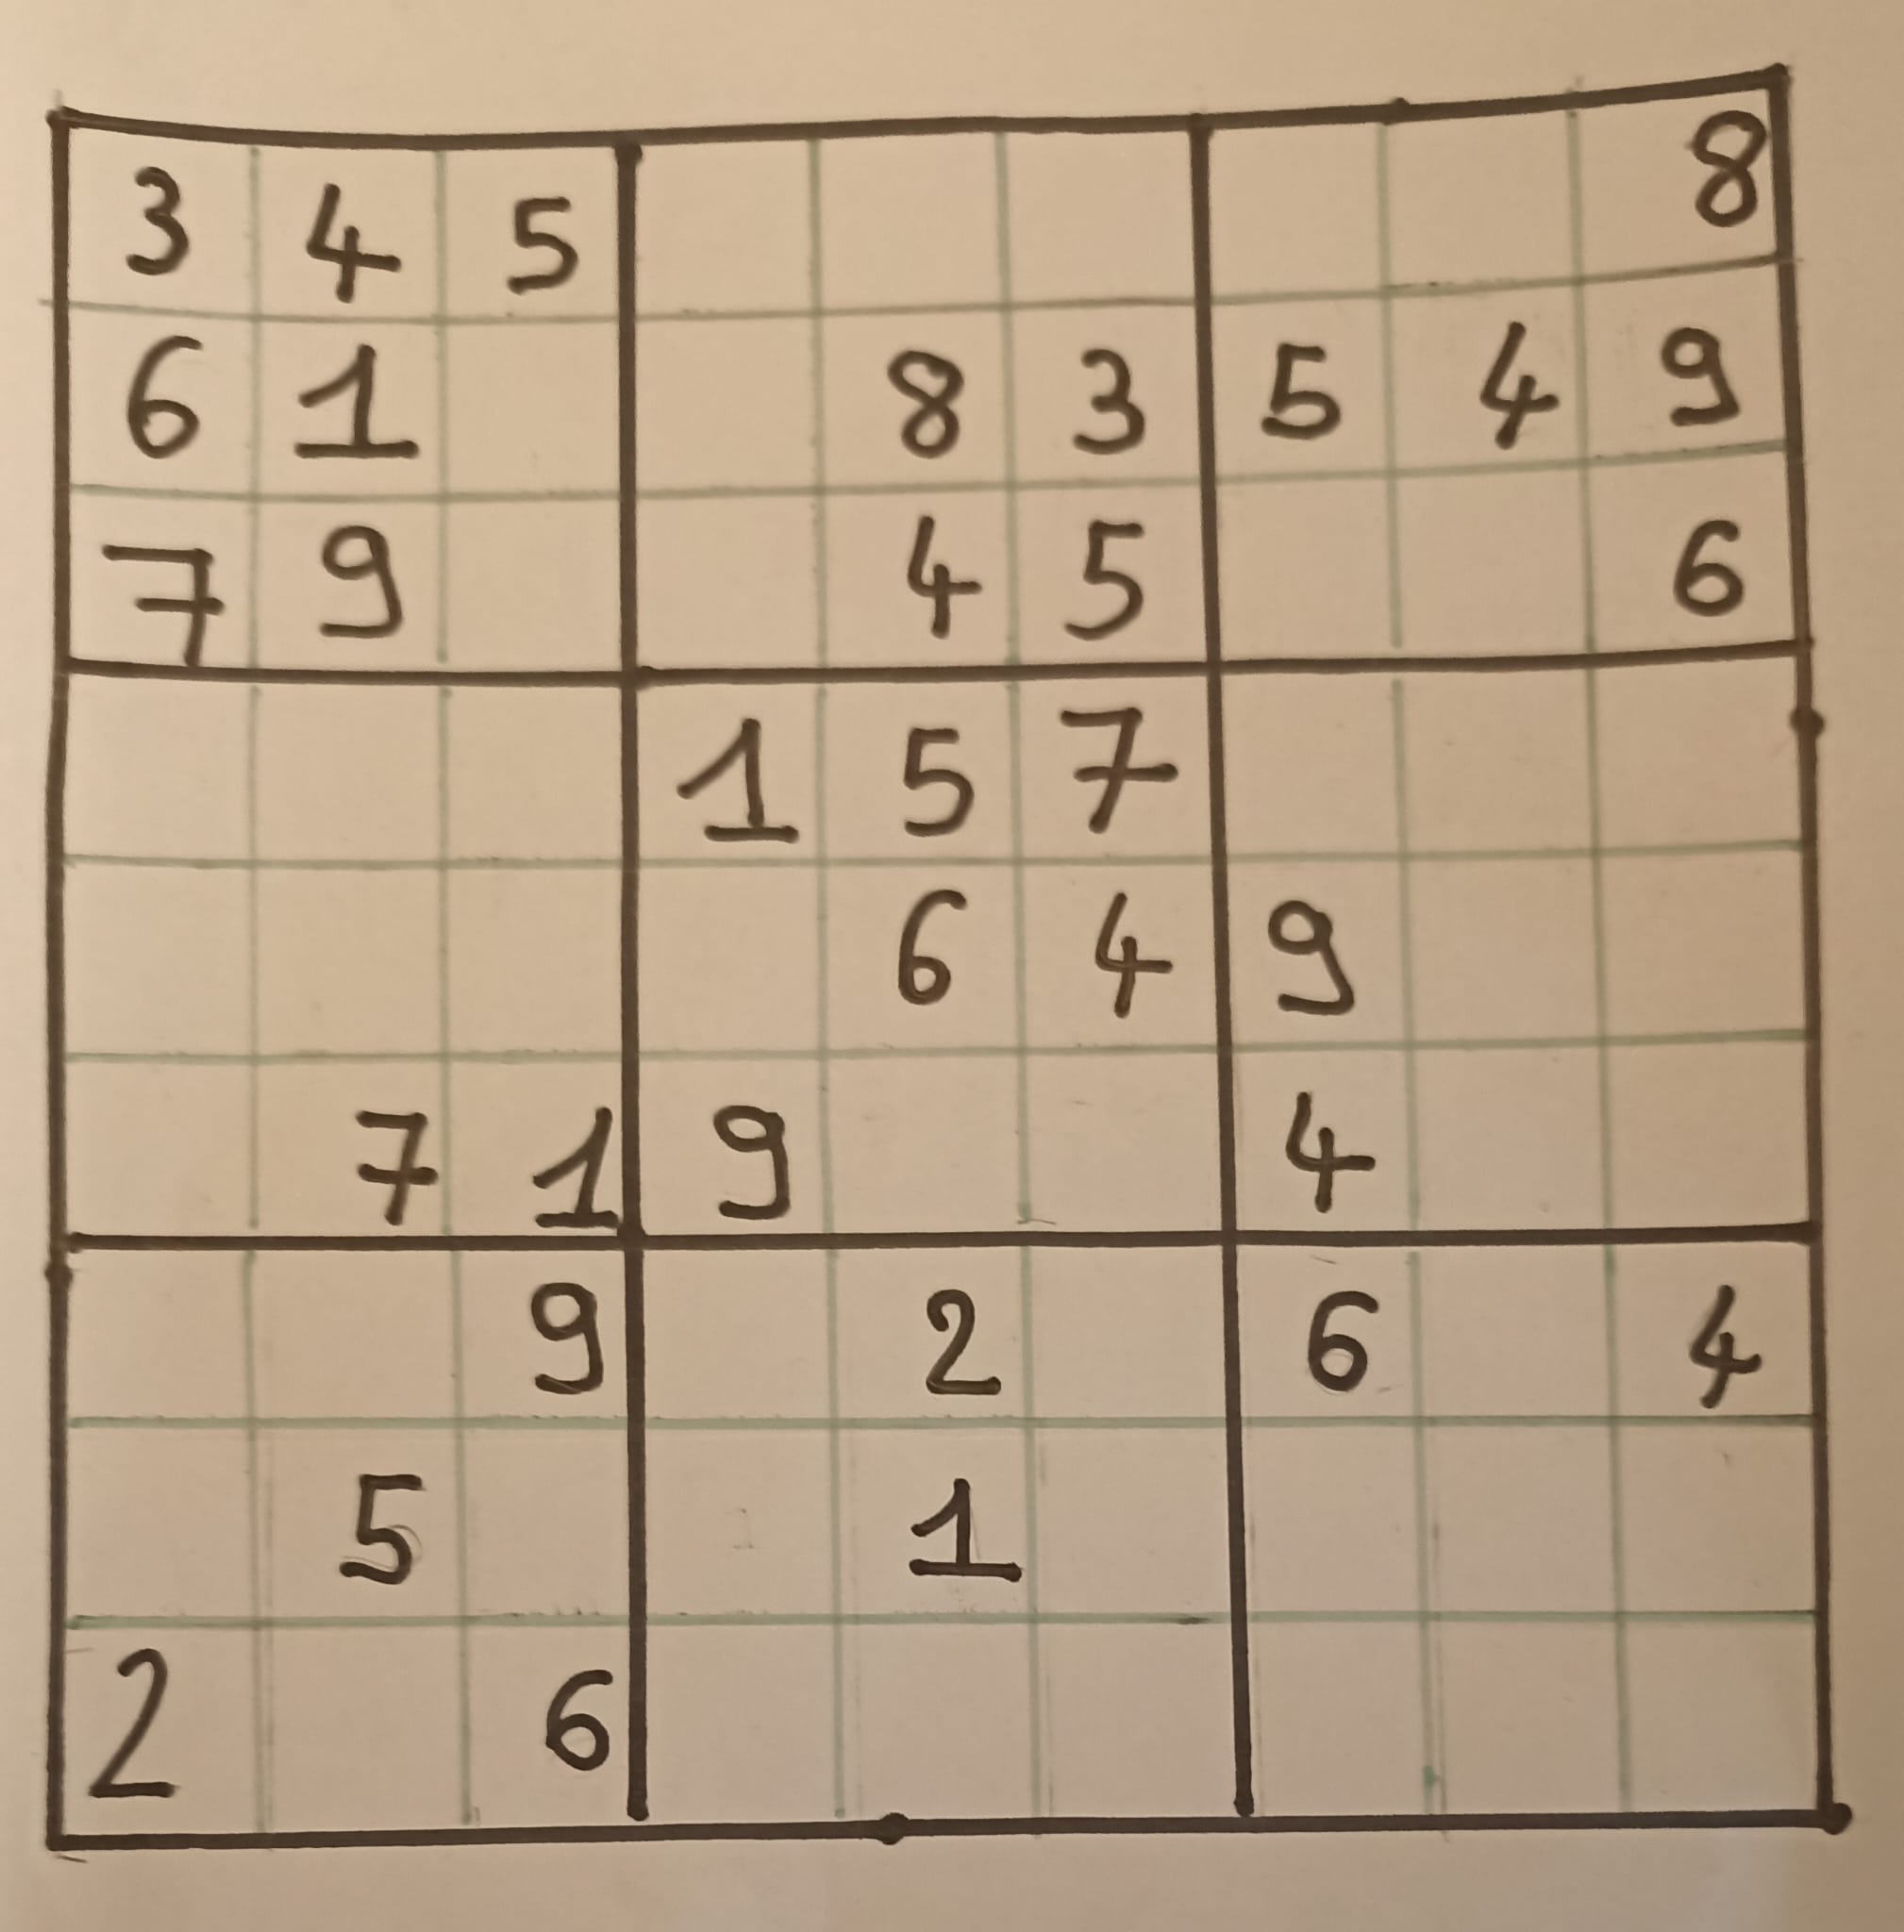 3 4 5 8
6 1 8 3 5 4 9
7 9 4 5 6
1 5 7
6 4 9
7 1 9 4
9 2 6 4
5 1
2 6